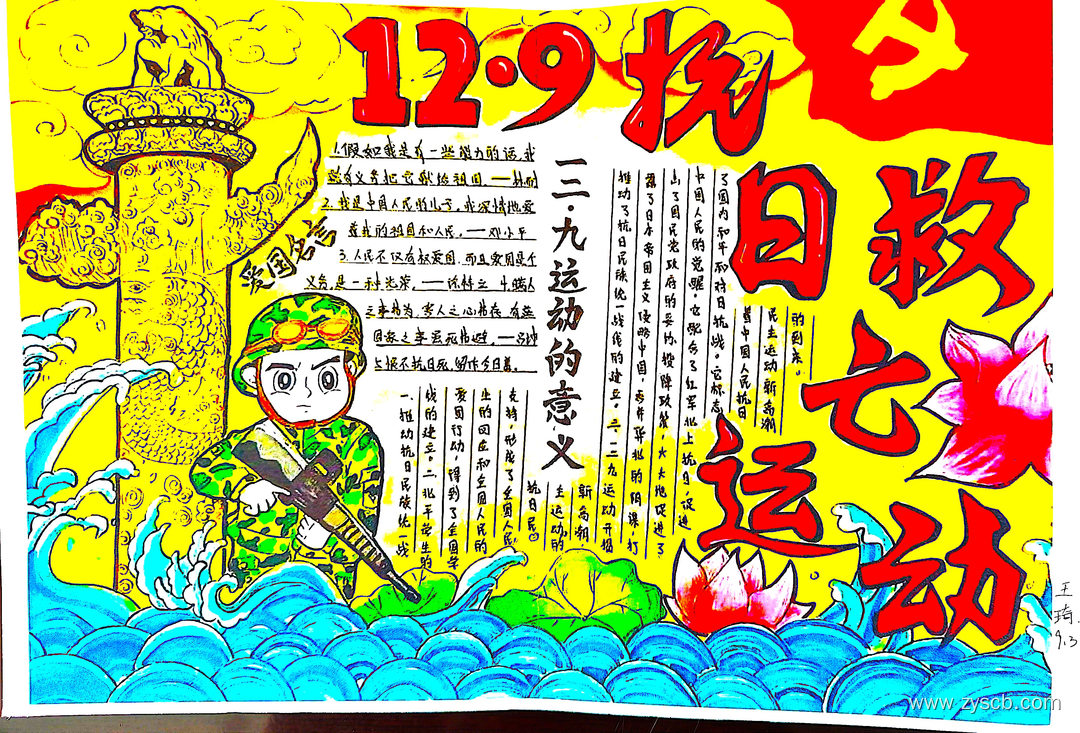 12·9 抗
日 救
亡
运
动
爱国名言
1.假如我是有一些能力的话,我
就有义务把它献给祖国.——林耐
2.我是中国人民的儿子.我深情地爱
着我的祖国和人民.——邓小平
3.人民不仅有权爱国.而且爱国是个
义务,是一种光荣.——徐特立 4.
恨不抗日死,留作今日羞。
三·九运动的意义
一、推动抗日民族统一战
线的建立。二北平学生的
爱国行动,得到了全国学
生的回应和全国人民的
支持,形成了全国人民
抗日民
主运动的
新高潮
推动了抗日民族统一战线的建立。三、一二九运动开揭
露了日本帝国主义侵略中国,吞并华北的阴谋,打
击了国民党政府的妥协投降政策,大大地促进了
中国人民的觉醒。它配合了红军北上抗日,促进
了国内和平和对日抗战。它标志
着中国人民抗日
民主运动新高潮
的到来。
王
琦.
9.3
www.zyscb.com